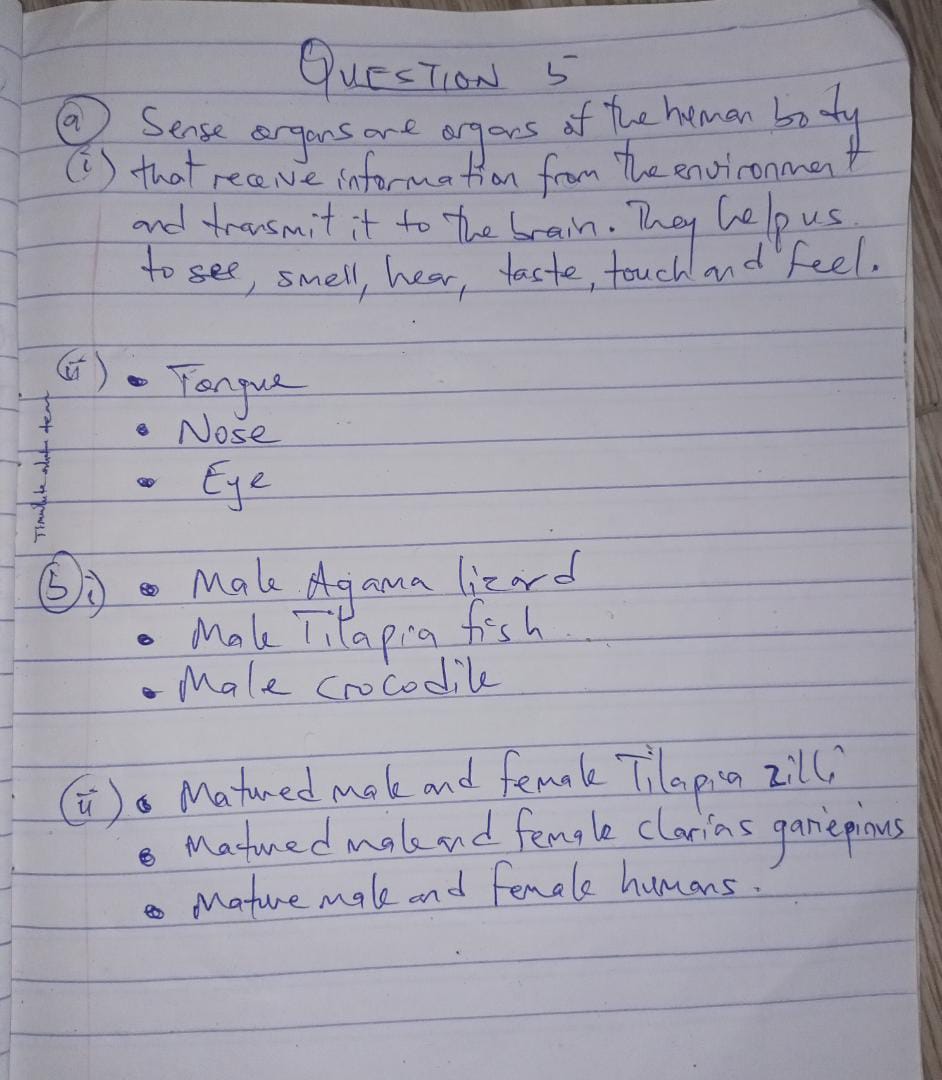 QUESTION 5
(a) Sense organs are organs of the human body
(i) that receive information from the environment
and transmit it to the brain. They help us
to see, smell, hear, taste, touch and feel.
(ii) • Tongue
• Nose
• Eye
(5) i) • Male Agama lizard
• Male Tilapia fish
• Male crocodile
(ii) • Matured male and female Tilapia zilli
• Matured male and female clarias gariepinus
• Mature male and female humans.